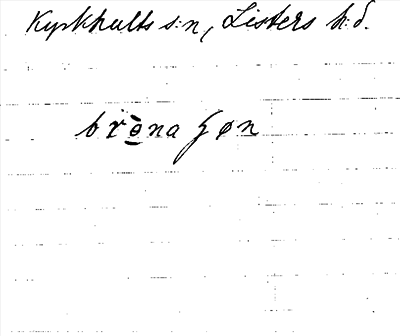 Kyrkhults s:n, Listers h:d.
brǝ̀na ʒøn